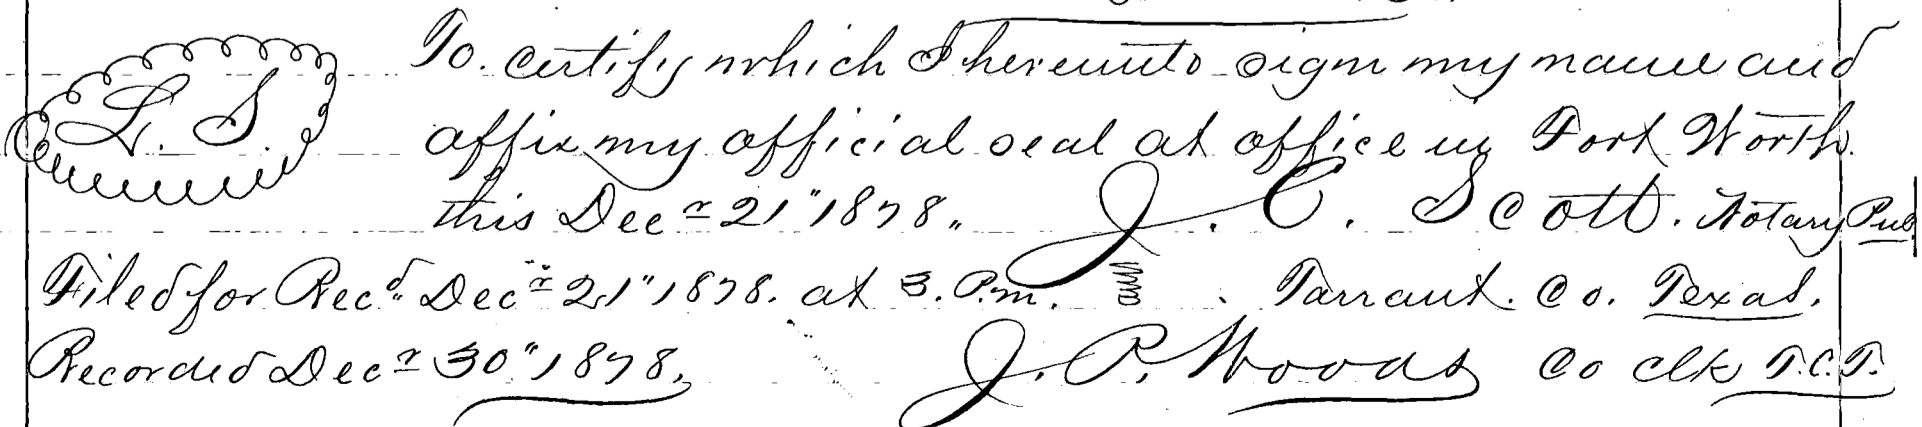 To. certify which I hereunto sign my name and
L. S. affix my official seal at office in Fort Worth.
this Decr 21" 1878. J. C. Scott. Notary Pub
Filed for Recd. Decr 21" 1878. at 3. P.m. Tarrant. Co. Texas.
Recorded Decr 30" 1878. J. P. Woods Co Clk T.C.T.